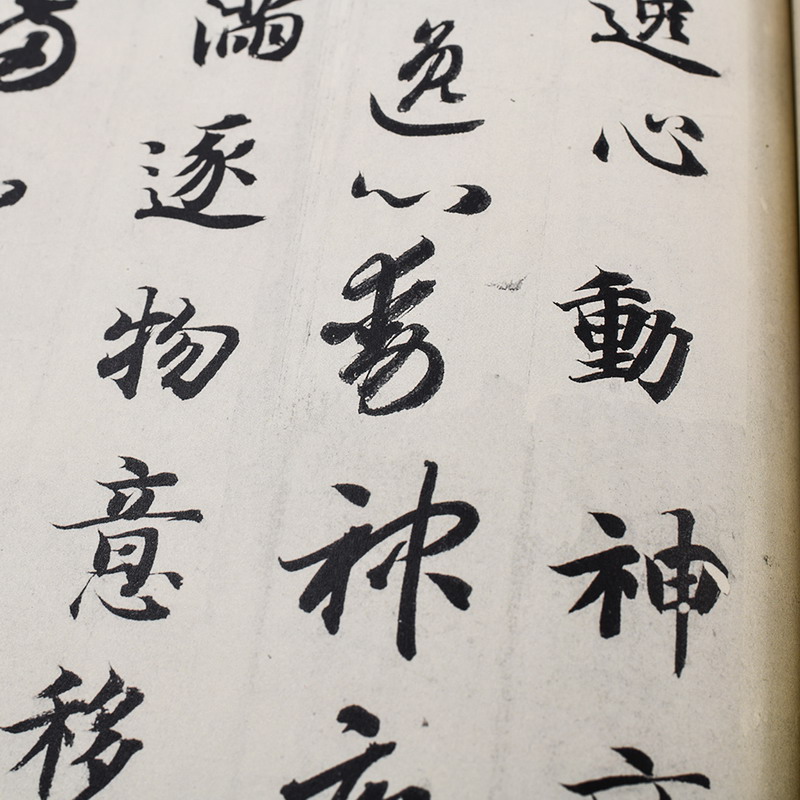 逸心動神
逸心動神疲
滿逐物意移